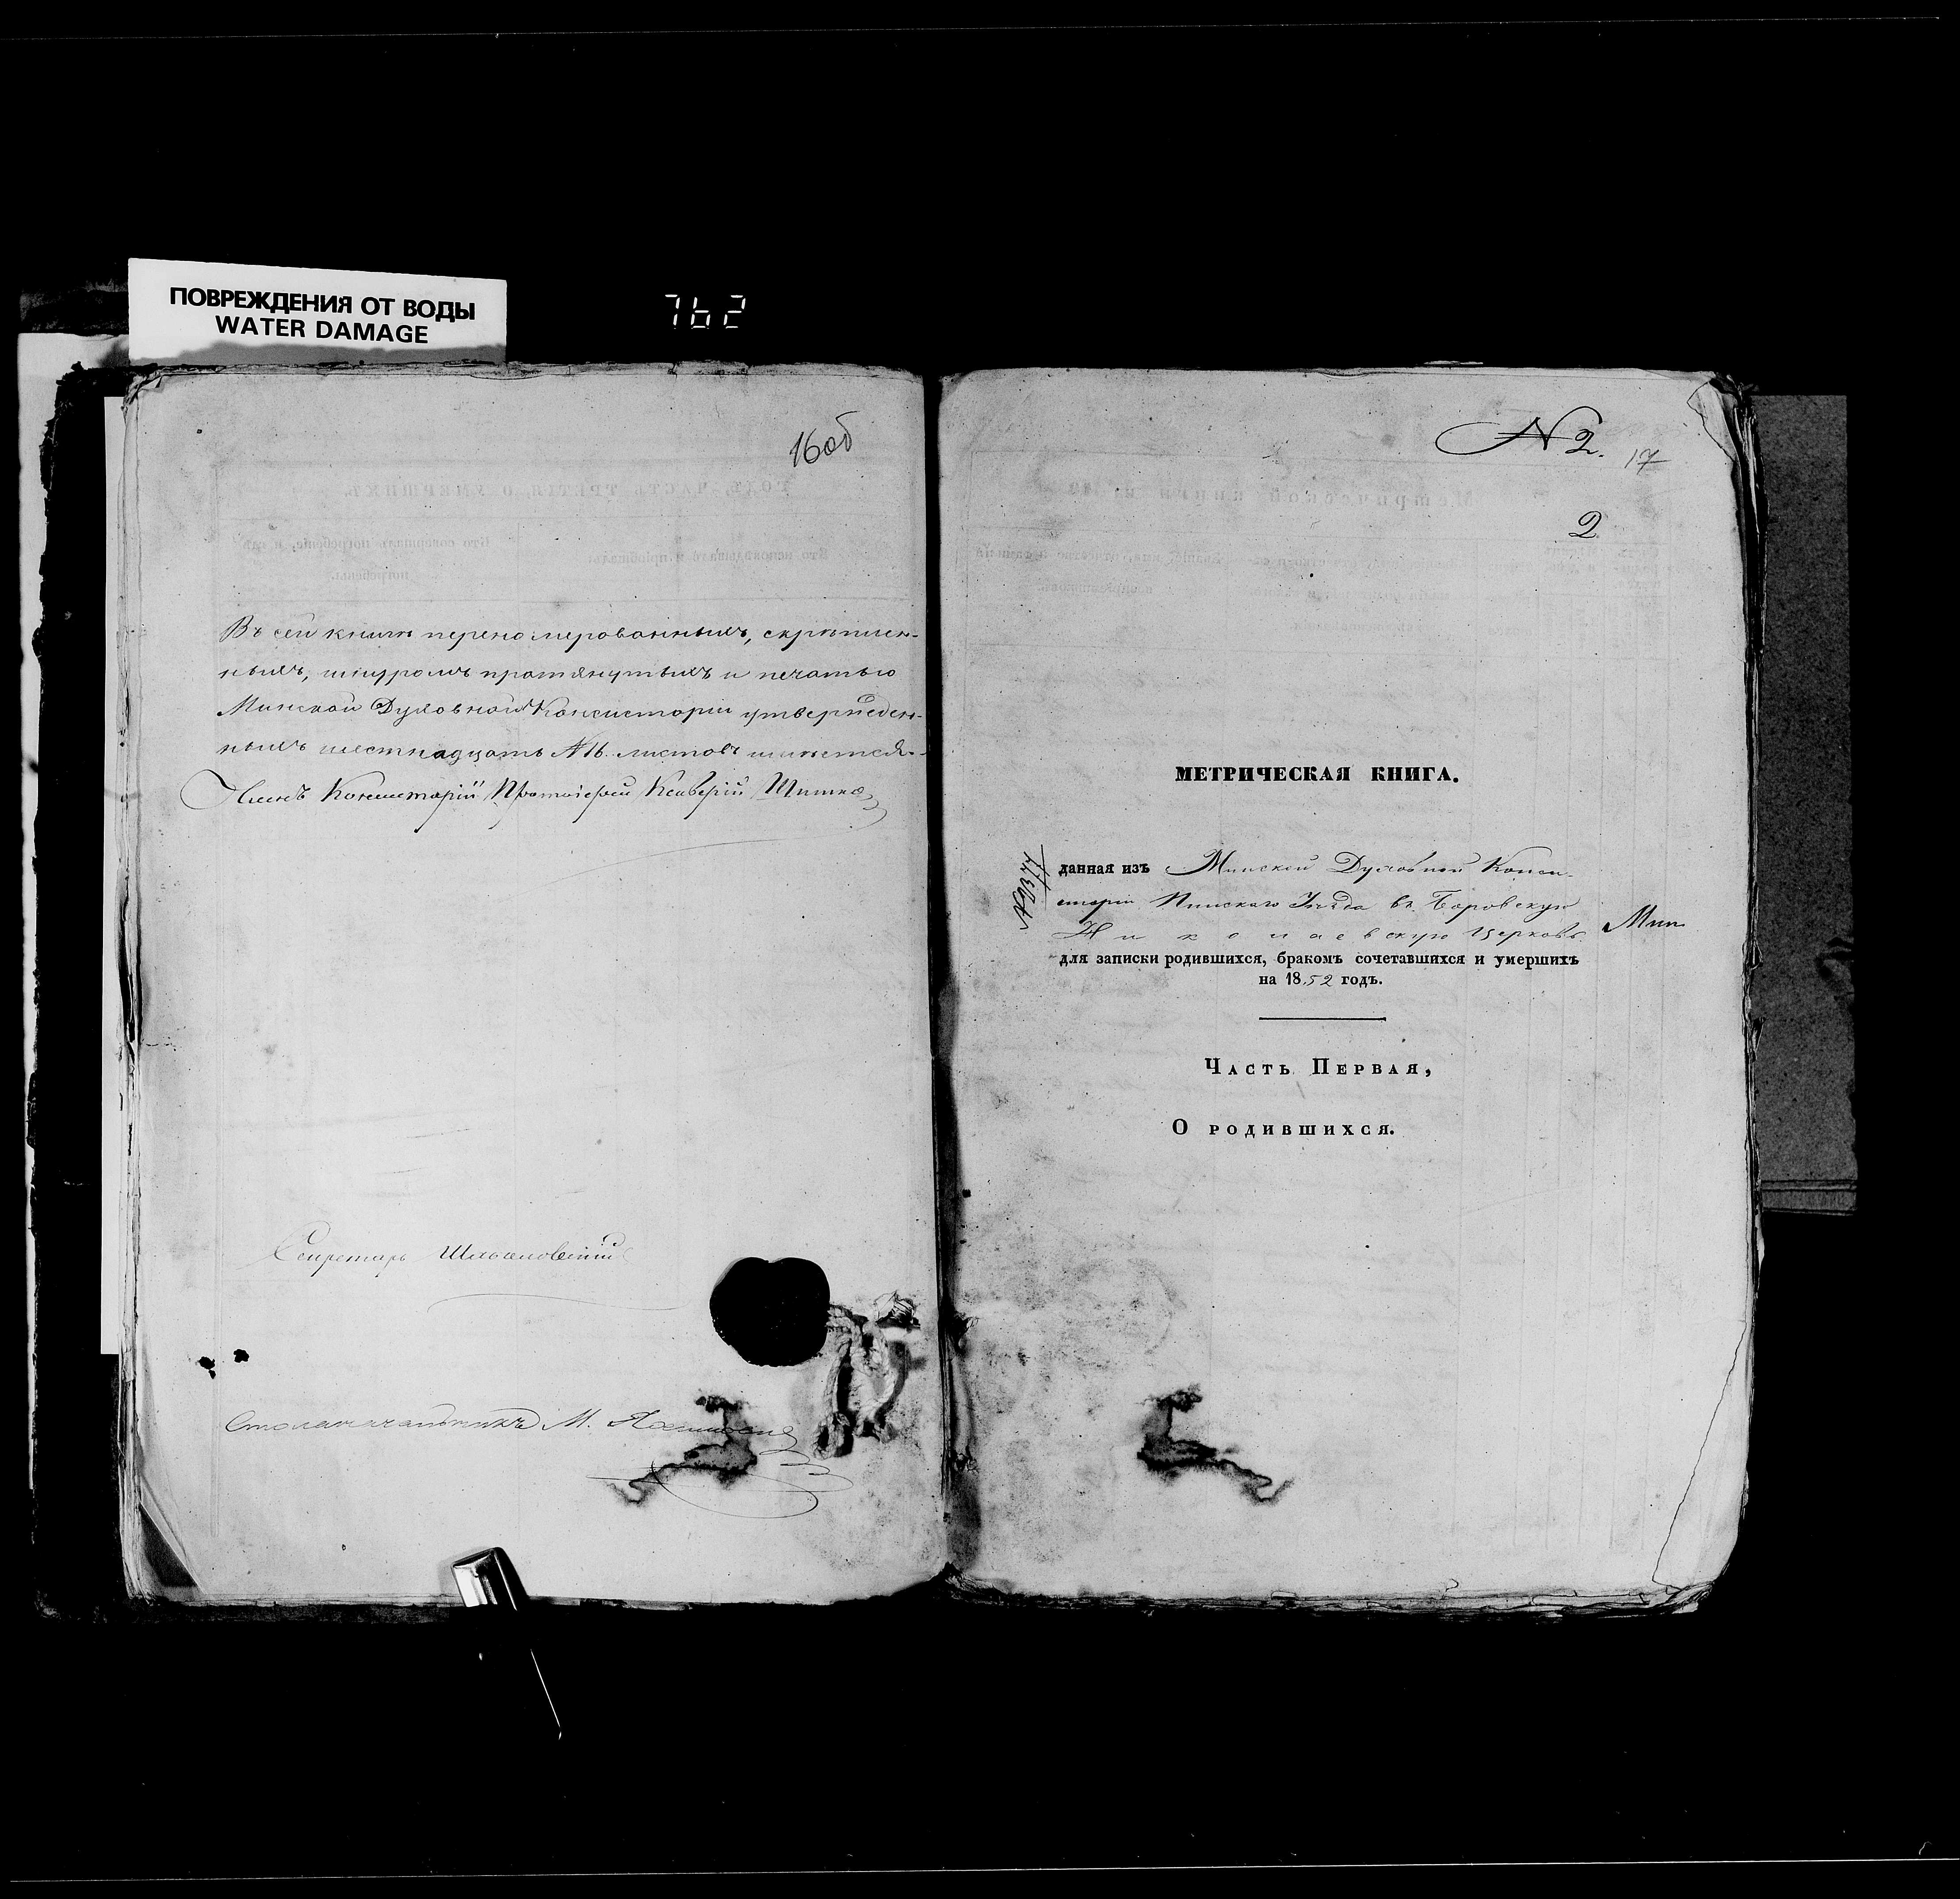 ПОВРЕЖДЕНИЯ ОТ ВОДЫ
WATER DAMAGE
762
16об
Въ сей книгѣ переномерованныхъ, скрѣплен-
ныхъ, шнуромъ протянутыхъ и печатью
Минской Духовной Консисторіи утвержден-
ныхъ шестнадцать №16. листовъ имѣется.
Членъ Консисторіи Протоіерей Ксаверій
Секретарь
Столоначальникъ М.
№ 2.
17
2
МЕТРИЧЕСКАЯ КНИГА.
данная изъ Минской Духовной Конси-
сторіи Пинскаго Уѣзда въ Боровскую
Николаевскую Церковь
Мин
для записки родившихся, бракомъ сочетавшихся и умершихъ
на 1852 годъ.
Часть Первая,
О родившихся.